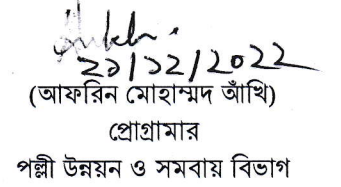 ২১/১২/২০২২
(আফরিন মোহাম্মদ আঁখি)
প্রোগ্রামার
পল্লী উন্নয়ন ও সমবায় বিভাগ